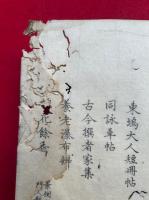 東塢大人短冊帖
同詠草帖
古今撰者家集
養老瀑布辨
化餘香